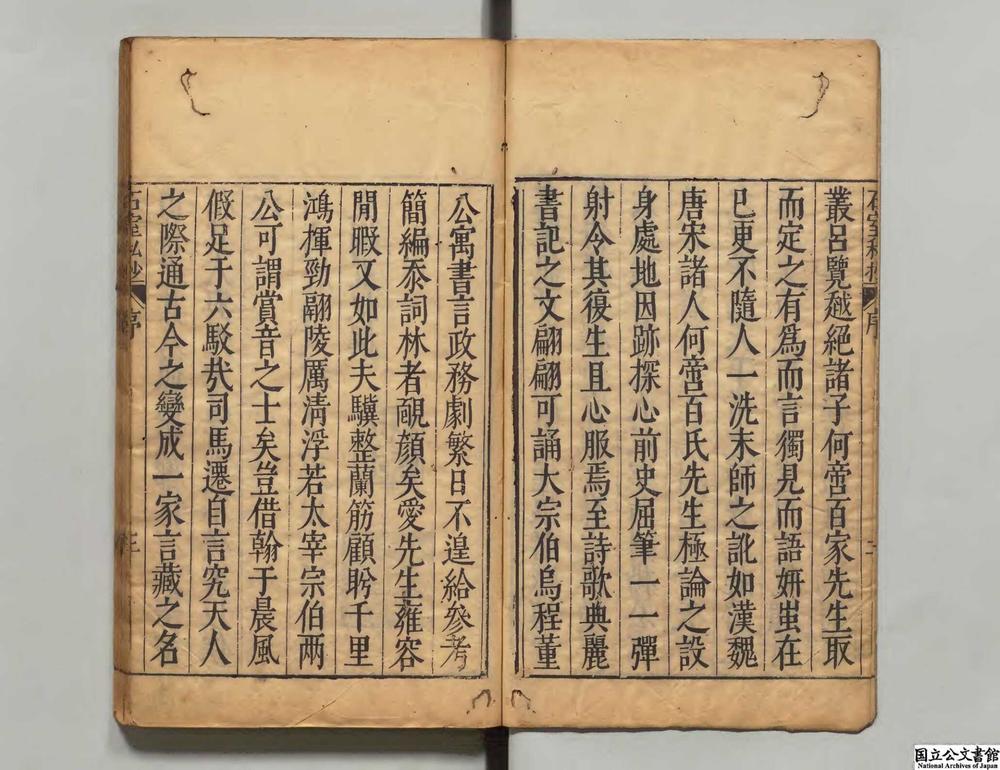 叢呂覽越絕諸子何啻百家先生取
而定之有爲而言獨見而語妍蚩在
巳更不隨人一洗末師之訛如漢魏
唐宋諸人何啻百氏先生極論之設
身處地因跡探心前史屈筆一一彈
射令其復生且心服焉至詩歌典麗
書記之文翩翩可誦大宗伯烏程董
公寓書言政務劇繁日不遑給參考
簡編忝詞林者覼顔矣愛先生雍容
閒暇又如此夫驥整蘭筋顧盻千里
鴻揮勁翮陵厲清浮若太宰宗伯兩
公可謂賞音之士矣豈借翰于晨風
假足于六駁㦲司馬遷自言究天人
之際通古今之變成一家言藏之名
石室私抄 序
国立公文書館
National Archives of Japan